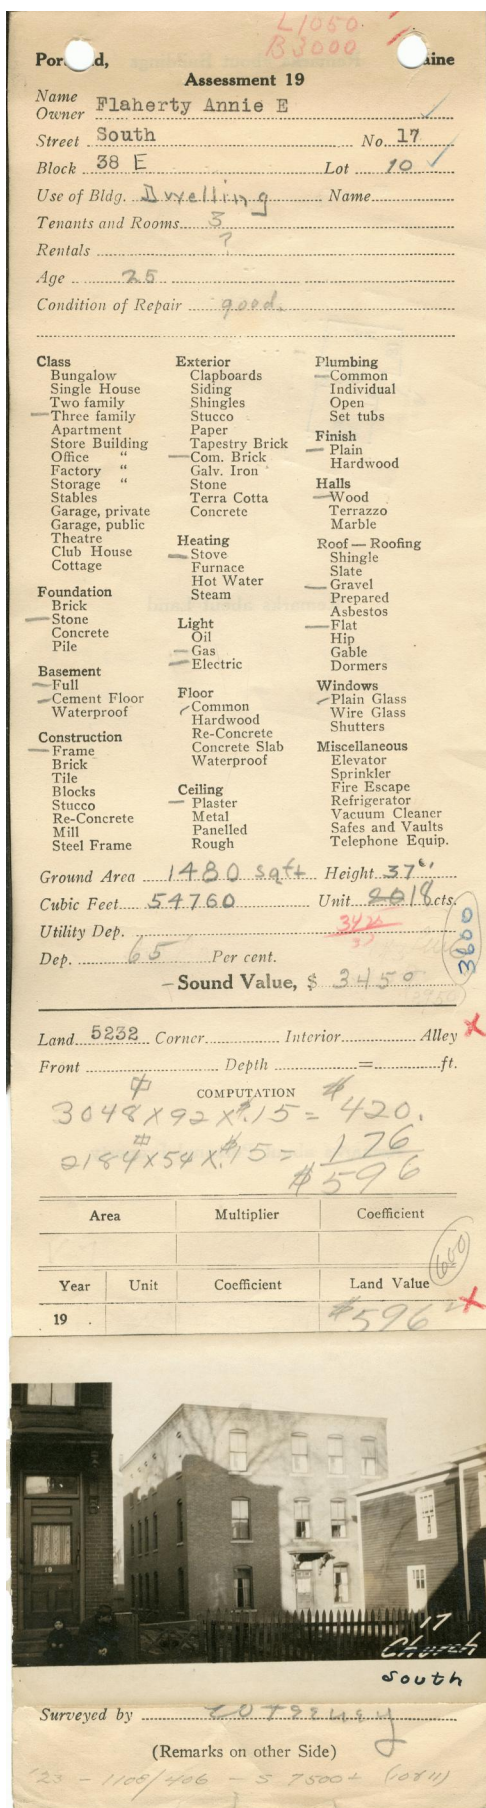 L1050
B3000
Portland, Maine
Assessment 19
Name
Owner Flaherty Annie E
Street South No. 17
Block 38 E Lot 10
Use of Bldg. Dwelling Name
Tenants and Rooms 3
Rentals ?
Age 25
Condition of Repair good.
Class
Bungalow
Single House
Two family
Three family
Apartment
Store Building
Office "
Factory "
Storage "
Stables
Garage, private
Garage, public
Theatre
Club House
Cottage
Foundation
Brick
Stone
Concrete
Pile
Basement
Full
Cement Floor
Waterproof
Construction
Frame
Brick
Tile
Blocks
Stucco
Re-Concrete
Mill
Steel Frame
Exterior
Clapboards
Siding
Shingles
Stucco
Paper
Tapestry Brick
Com. Brick
Galv. Iron
Stone
Terra Cotta
Concrete
Heating
Stove
Furnace
Hot Water
Steam
Light
Oil
Gas
Electric
Floor
Common
Hardwood
Re-Concrete
Concrete Slab
Waterproof
Ceiling
Plaster
Metal
Panelled
Rough
Plumbing
Common
Individual
Open
Set tubs
Finish
Plain
Hardwood
Halls
Wood
Terrazzo
Marble
Roof — Roofing
Shingle
Slate
Gravel
Prepared
Asbestos
Flat
Hip
Gable
Dormers
Windows
Plain Glass
Wire Glass
Shutters
Miscellaneous
Elevator
Sprinkler
Fire Escape
Refrigerator
Vacuum Cleaner
Safes and Vaults
Telephone Equip.
Ground Area 1480 sqft Height 37
Cubic Feet 54760 Unit 20 18 cts.
Utility Dep. 3425
Dep. 65 Per cent.
3600
Sound Value, $ 3450
Land 5232 Corner Interior Alley
Front Depth = ft.
COMPUTATION
3048 x 92 x $.15 = $420.
2184 x 54 x $.15 = 176
$596
Area Multiplier Coefficient
600
Year Unit Coefficient Land Value
19 $596
17
Church
South
Surveyed by
(Remarks on other Side)